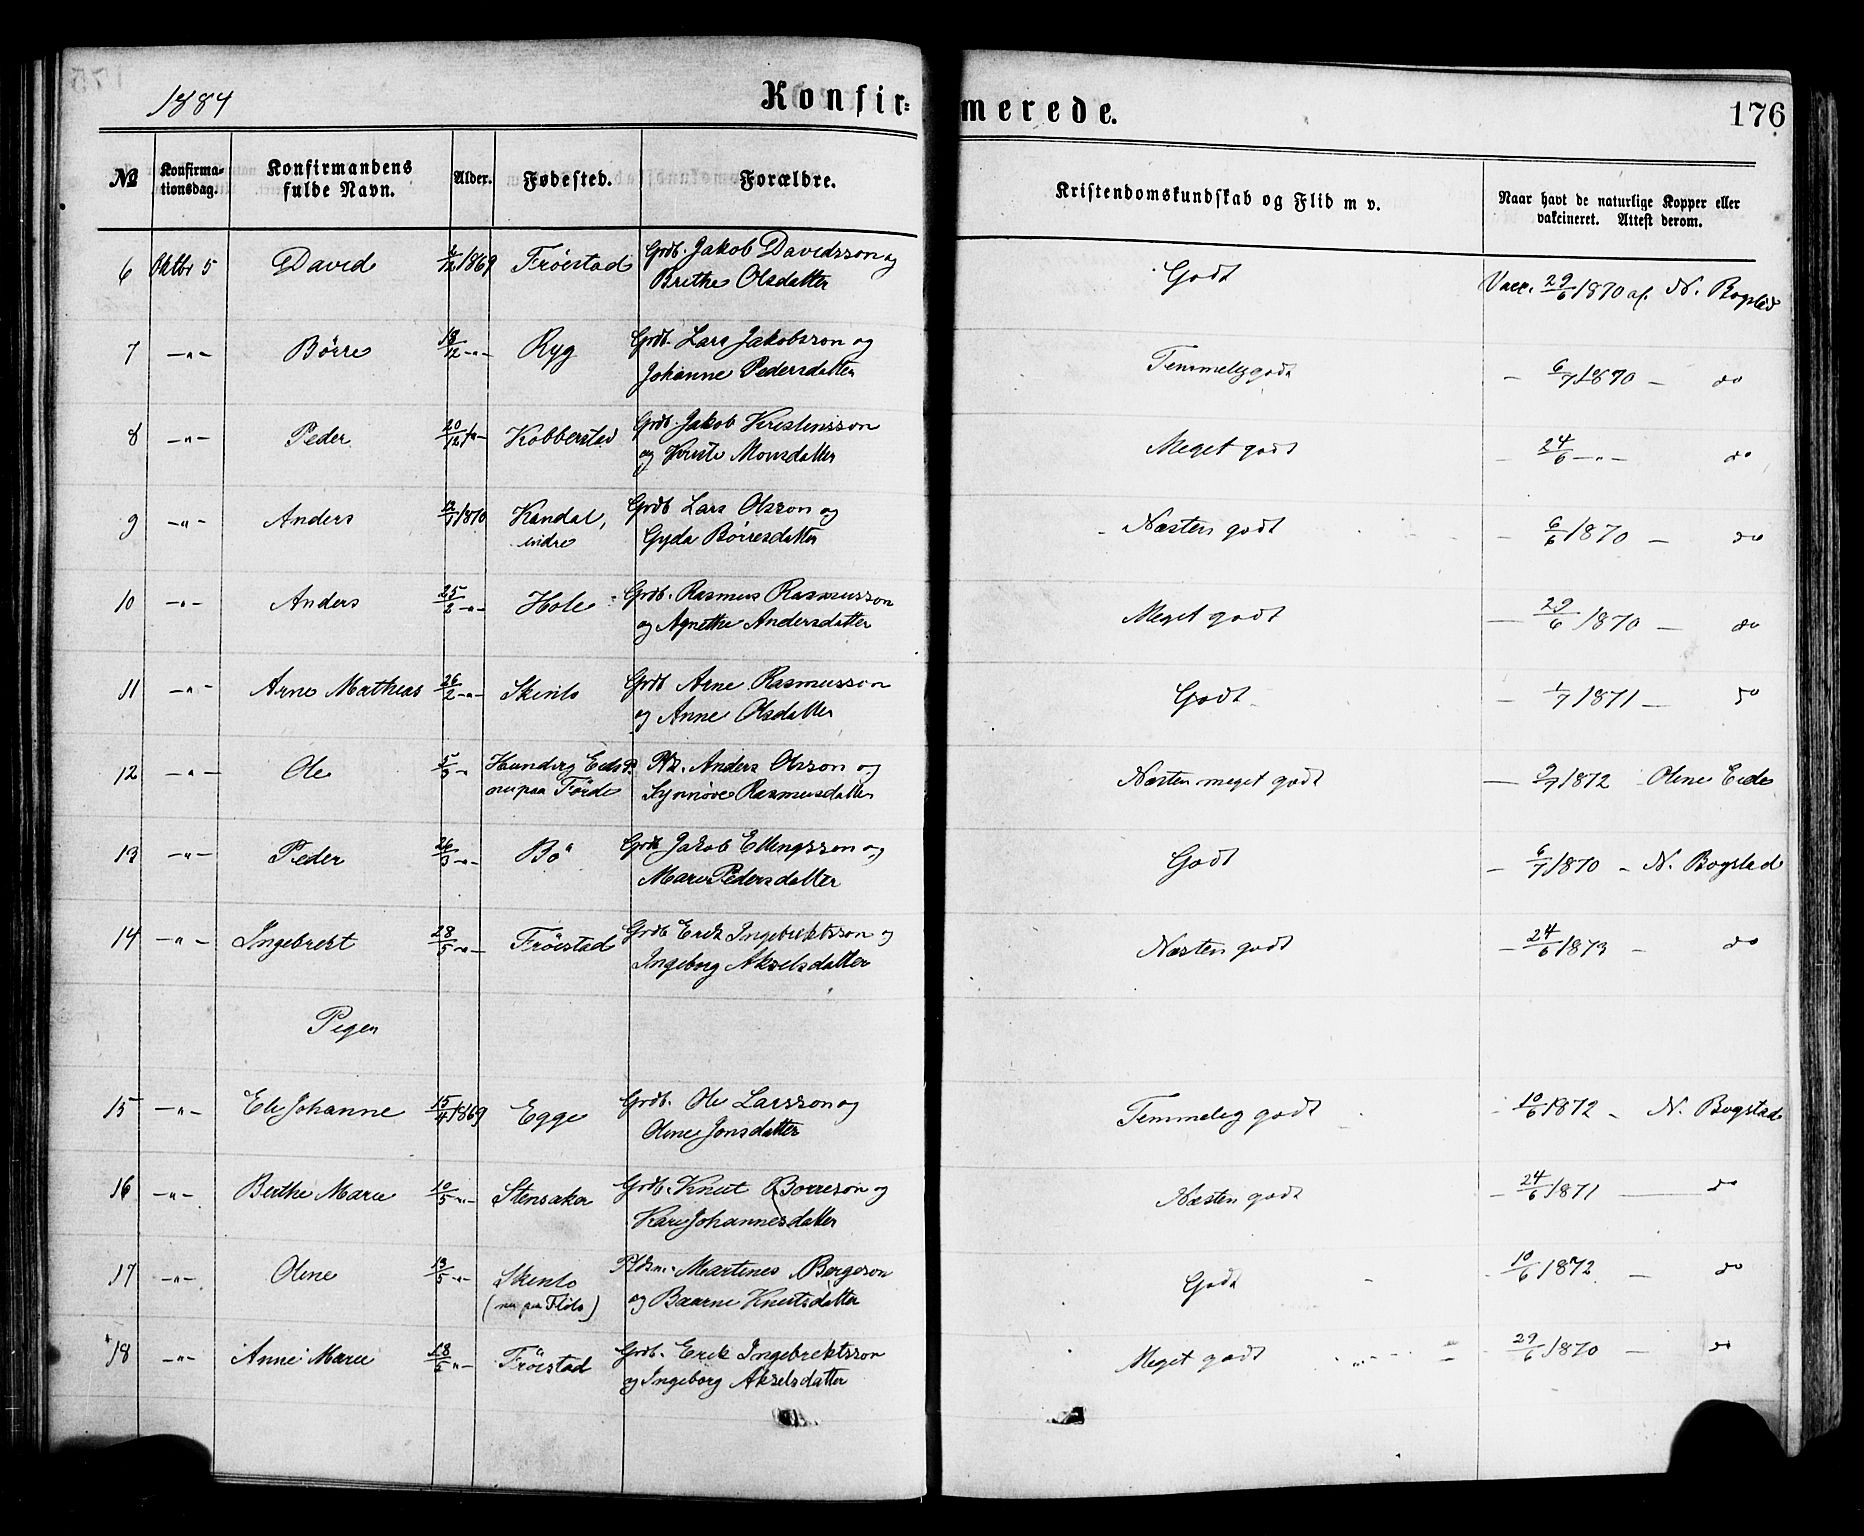 1884
Konfir=
merede.
176
No
Konfirma-
tionsdag.
Konfirmandens
fulde Navn.
Alder.
Fødested.
Forældre.
Kristendomskundskab og Flid m v.
Naar havt de naturlige Kopper eller
vakcineret. Attest derom.
6 Oktbr 5 David /12 1869 Fröistad Grdb. Jakob Davidsson og
Brithe Olsdatter
Godt Vacc. 29/6 1870 af. N. Bogstad
7 -"- Börre 18/12 -"- Ryg Grdb. Lars Jakobsson og
Johanne Pedersdatter
Temmelig godt - 6/7 1870 - do
8 -"- Peder 20/12 -"- Kobberstad Grdb. Jakob Kristensson
og Monsdatter
Meget godt - 24/6 -"- do
9 -"- Anders /7 1870 Kandal, Grdb Lars Olsson og
indre Gyda Börresdatter
- Næsten godt - 6/6 1870 - do
10 -"- Anders 25/2 -"- Hole Grdb. Rasmus Rasmusson
og Agnethe Andersdatter
Meget godt - 29/6 1870 - do
11 -"- Arne Mathias 26/2 -"- Skinlo Grdb Arne Rasmusson
og Anne Olsdatter
Godt - 1/7 1871 - do
12 -"- Ole 5/3 -" Hundvg Eids P. Pld. Anders Olsson og
nu paa Förde Synnöve Rasmusdatter
Næsten meget godt - 9/7 1872 Oline Eide
13 -"- Peder 26/3 -"- Bö Grdb Jakob Ellingsson og
Mari Pedersdatter
Godt - 6/7 1870 - N. Bogstad
14 -"- Ingebrekt 28/5 -"- Fröistad Grdb Erik Ingebrektsson og
Ingeborg Akselsdatter
Næsten godt - 24/6 1873 - do
Piger
15 -"- Eli Johanne 15/4 1869 Egge Grdb. Ole Larsson og
Oline Jonsdatter
Temmelig godt - 10/6 1872 - N. Bogstad
16 -"- Berthe Marie 10/5 -"- Stensaker Grdb. Knut Börreson og
Kari Johannesdatter
Næsten godt - 24/6 1871 - do
17 -"- Oline 13/5 -"- Skinlo Pldsm. Martines Bergeson
(nu paa Flölo) og Baarne Knutsdatter
Godt - 10/6 1872 - do
18 -"- Anne Marie 18/5 -"- Fröistad Grdb. Erik Ingebrektsson
og Ingeborg Akselsdatter
Meget godt - 29/6 1870 - do